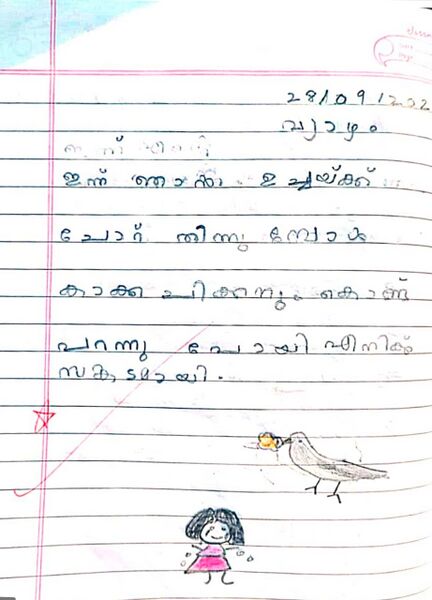 28/09/202
വ്യാഴം
ഇന്ന് ഞാൻ ഉച്ചയ്ക്ക്
ചോറ് തിന്നുമ്പോൾ
കാക്ക ചിക്കനും കൊണ്ട്
പറന്നു പോയി എനിക്ക്
സങ്കടമായി.